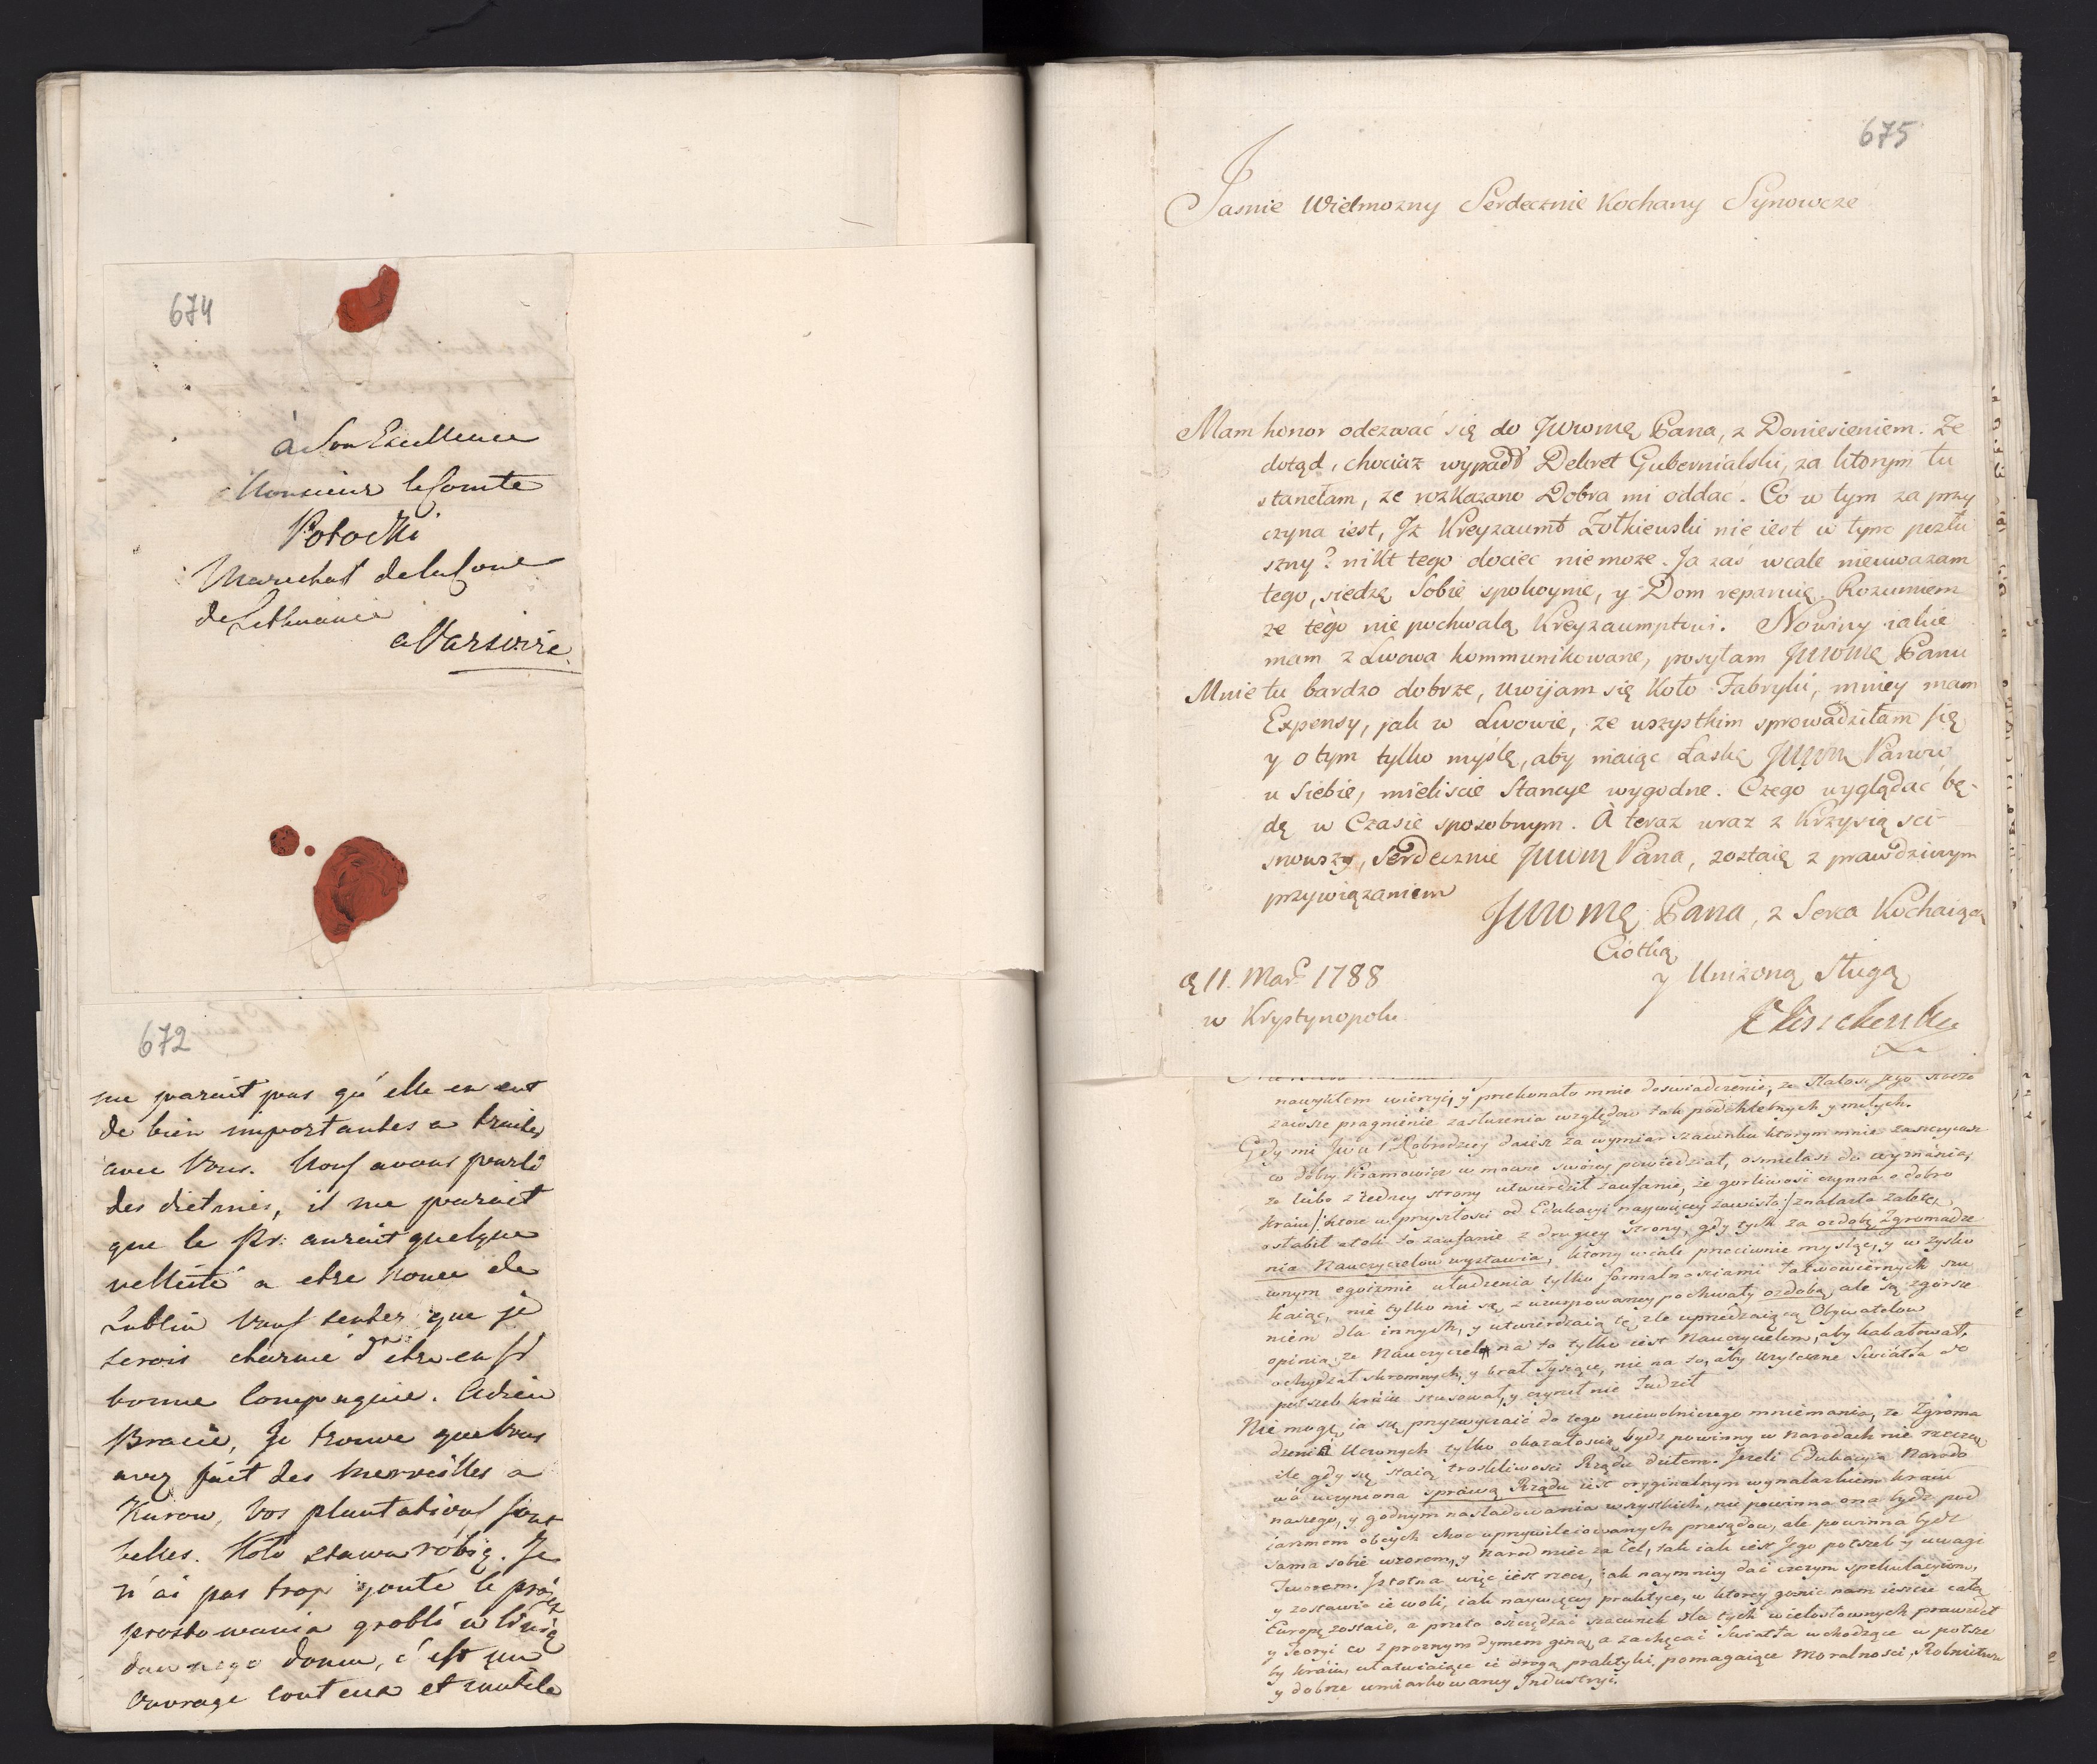 674
à Son Excellence
Monsieur le Comte
Potocki
Marechal de la Cour
de Lithuanie
a Varsovie
672
me parait pas qu'elle en eut
de bien importantes a traiter
avec Vous. Nous avons parlé
des dietines, il me parait
que le Pr: auroit quelque
velleité a etre nonce de
Lublin Vous sentez que je
serois charmé d'etre en si
bonne Compagnie. Adieu
Bracie, Je trouve que Vous
avez fait des merveilles a
Kurow, Vos plantations sont
belles. Koło stawu robią. Je
n'ai pas trop gouté le projet
prostowania grobli w linią
dawnego domu, c'est un
Ouvrage couteux et inutile
675
Jasnie Wielmozny Serdecznie Kochany Synowcze
Mam honor odezwać się do JWWMę Pana, z Doniesieniem. Ze
dotąd, chociaz wypadł Dekret Gubernialski, za ktorym tu
stanełam, ze rozkazano Dobra mi oddac. Co w tym za przy
czyna iest, Jż Kreyzaumt Zołkiewski nie iest w tym posłu
szny? nikt tego dociec nie moze. Ja zaś wcale nieuwazam
tego, siedzę sobie spokoynie, y Dom reparuię. Rozumiem
ze tego nie pochwalą Kreyzaumptowi. Nowiny iakie
mam z Lwowa kommunikowane, posyłam JWWMę Panu
Mnie tu bardzo dobrze, uwijam się koło Fabryki, mniey mam
Expensy, jak w Lwowie, ze wszystkim sprowadziłam się
y o tym tylko myślę, aby maiąc Łaskę JWWM Panow
u siebie, mieliscie Stancye wygodne. Czego wyglądać bę-
dę w Czasie sposobnym. A teraz wraz z Krzysią sci-
snowszy, Serdecznie JWWM Pana, zostaię z prawdziwym
przywiązaniem
JWWMę Pana, z Serca Kochaiącą
Ciotką
y Unizoną Sługą
11. Mar. 1788
w Krystynopolu
nawykłem wierzyć, y przekonało mnie doswiadczenie, ze Stałosc Jego
zawsze pragnienie zasłuzenia względow tak podchlebnych y miłych.
Gdy mi JW Dobrodziey daiesz za wymiar szacunku ktorym mnie zaszczycasz
co dobry Piramowicz w mowie swoiey powiedział, osmielasz do wyznania,
ze lubo z iedney strony utwierdził zaufanie, że gorliwość czynna o dobro
kraiu /: ktore w przyszłosci od Edukacyi naywięcey zawisło :/ znalazła zaletę,
osłabił atoli to zaufanie z drugiey strony, gdy tych za ozdobę Zgromadze
nia Nauczycielow wystawia, ktorzy wcale przeciwnie myśląc, y w zysko
wnym egoizmie ułudzenia tylko formalnosciami łatwowiernych szu
kaiąc, nie tylko nie są z uzurpowaney pochwały ozdobą, ale są zgorsze
niem dla innych, y utwierdzaią tę zle uprzedzaiącą Obywatelow
opinią, ze Nauczyciel na to tylko iest Nauczycielem, aby kabałował,
ochydzał skromnych, y brał Tysiące, nie na to, aby uzyteczne Swiatła do
potrzeb kraiu stosował, y czynił nie łudził
Nie mogę ia się przyzwyczaić do tego niewolniczego mniemania, ze Zgroma
dzenia Uczonych tylko okazałoscią bydz powinny w narodach nie rzeczą
ile gdy się staią troskliwości Rządu dziełem. Jezeli Edukacyia Narodo
wa uczyniona sprawą Rządu iest oryginalnym wynalazkiem kraiu
naszego, y godnym nasladowania wszystkich, nie powinna ona bydz pod
iarzmem obcych choc uprzywileiowanych przesądow, ale powinna bydz
sama sobie wzorem, y narod miec za Cel, tak iak iest Jego potrzeb y uwagi
Tworem. Jstotna więc iest rzecz, iak naymniey dać czczym spekulacyiom,
y zostawic ie woli, iak naywięcey praktyce, w ktorey gonić nam ieszcze całą
Europę zostaie, a przeto oszczędzać szacunek dla tych wielosłownych prawideł
y Teoryi co z proznym dymem giną, a zachęcać Swiatła wchodzące w potrze
by kraiu, ułatwiaiące ie drogą praktyki, pomagaiące Moralnosci, Rolnictwu
y dobrze umiarkowaney Industryi.